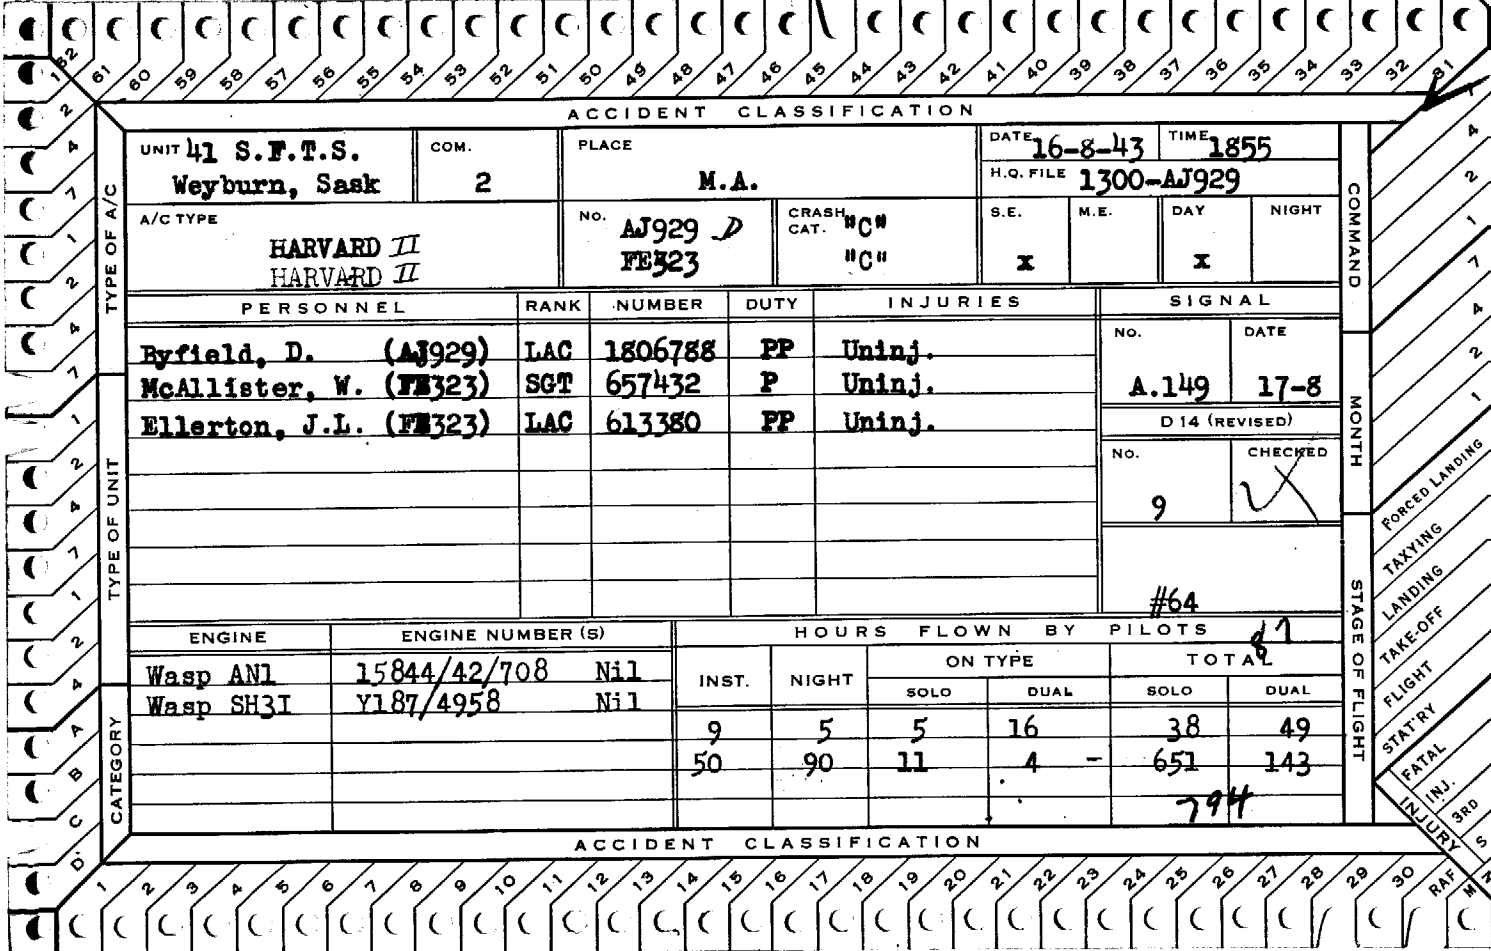 62 61 60 59 58 57 56 55 54 53 52 51 50 49 48 47 46 45 44 43 42 41 40 39 38 37 36 35 34 33 32 31
ACCIDENT CLASSIFICATION
UNIT 41 S.F.T.S.
Weyburn, Sask
COM.
2
PLACE
M.A.
DATE 16-8-43
TIME 1855
H.Q. FILE 1300-AJ929
A/C TYPE
HARVARD II
HARVARD II
NO.
AJ929 D
FE323
CRASH CAT. "C"
"C"
S.E. M.E. DAY NIGHT
x x
PERSONNEL RANK NUMBER DUTY INJURIES
Byfield, D. (AJ929) LAC 1806788 PP Uninj.
McAllister, W. (FE323) SGT 657432 P Uninj.
Ellerton, J.L. (FE323) LAC 613380 PP Uninj.
SIGNAL
NO. DATE
A.149 17-8
D 14 (REVISED)
NO. CHECKED
9
#64
ENGINE ENGINE NUMBER (S)
Wasp AN1 15844/42/708 Nil
Wasp SH3I Y187/4958 Nil
HOURS FLOWN BY PILOTS
87
INST. NIGHT ON TYPE TOTAL
SOLO DUAL SOLO DUAL
9 5 5 16 38 49
50 90 11 4 - 651 143
794
ACCIDENT CLASSIFICATION
1 2 3 4 5 6 7 8 9 10 11 12 13 14 15 16 17 18 19 20 21 22 23 24 25 26 27 28 29 30 RAF
TYPE OF A/C
TYPE OF UNIT
CATEGORY
1 2 4 7 1 2 4 7 1 2 4 7 1 2 4 A B C D
COMMAND
MONTH
STAGE OF FLIGHT
4 2 1 7 4 2 1
FORCED LANDING
TAXYING
LANDING
TAKE-OFF
FLIGHT
STAT'RY
FATAL
INJ.
3RD
S
M
INJURY